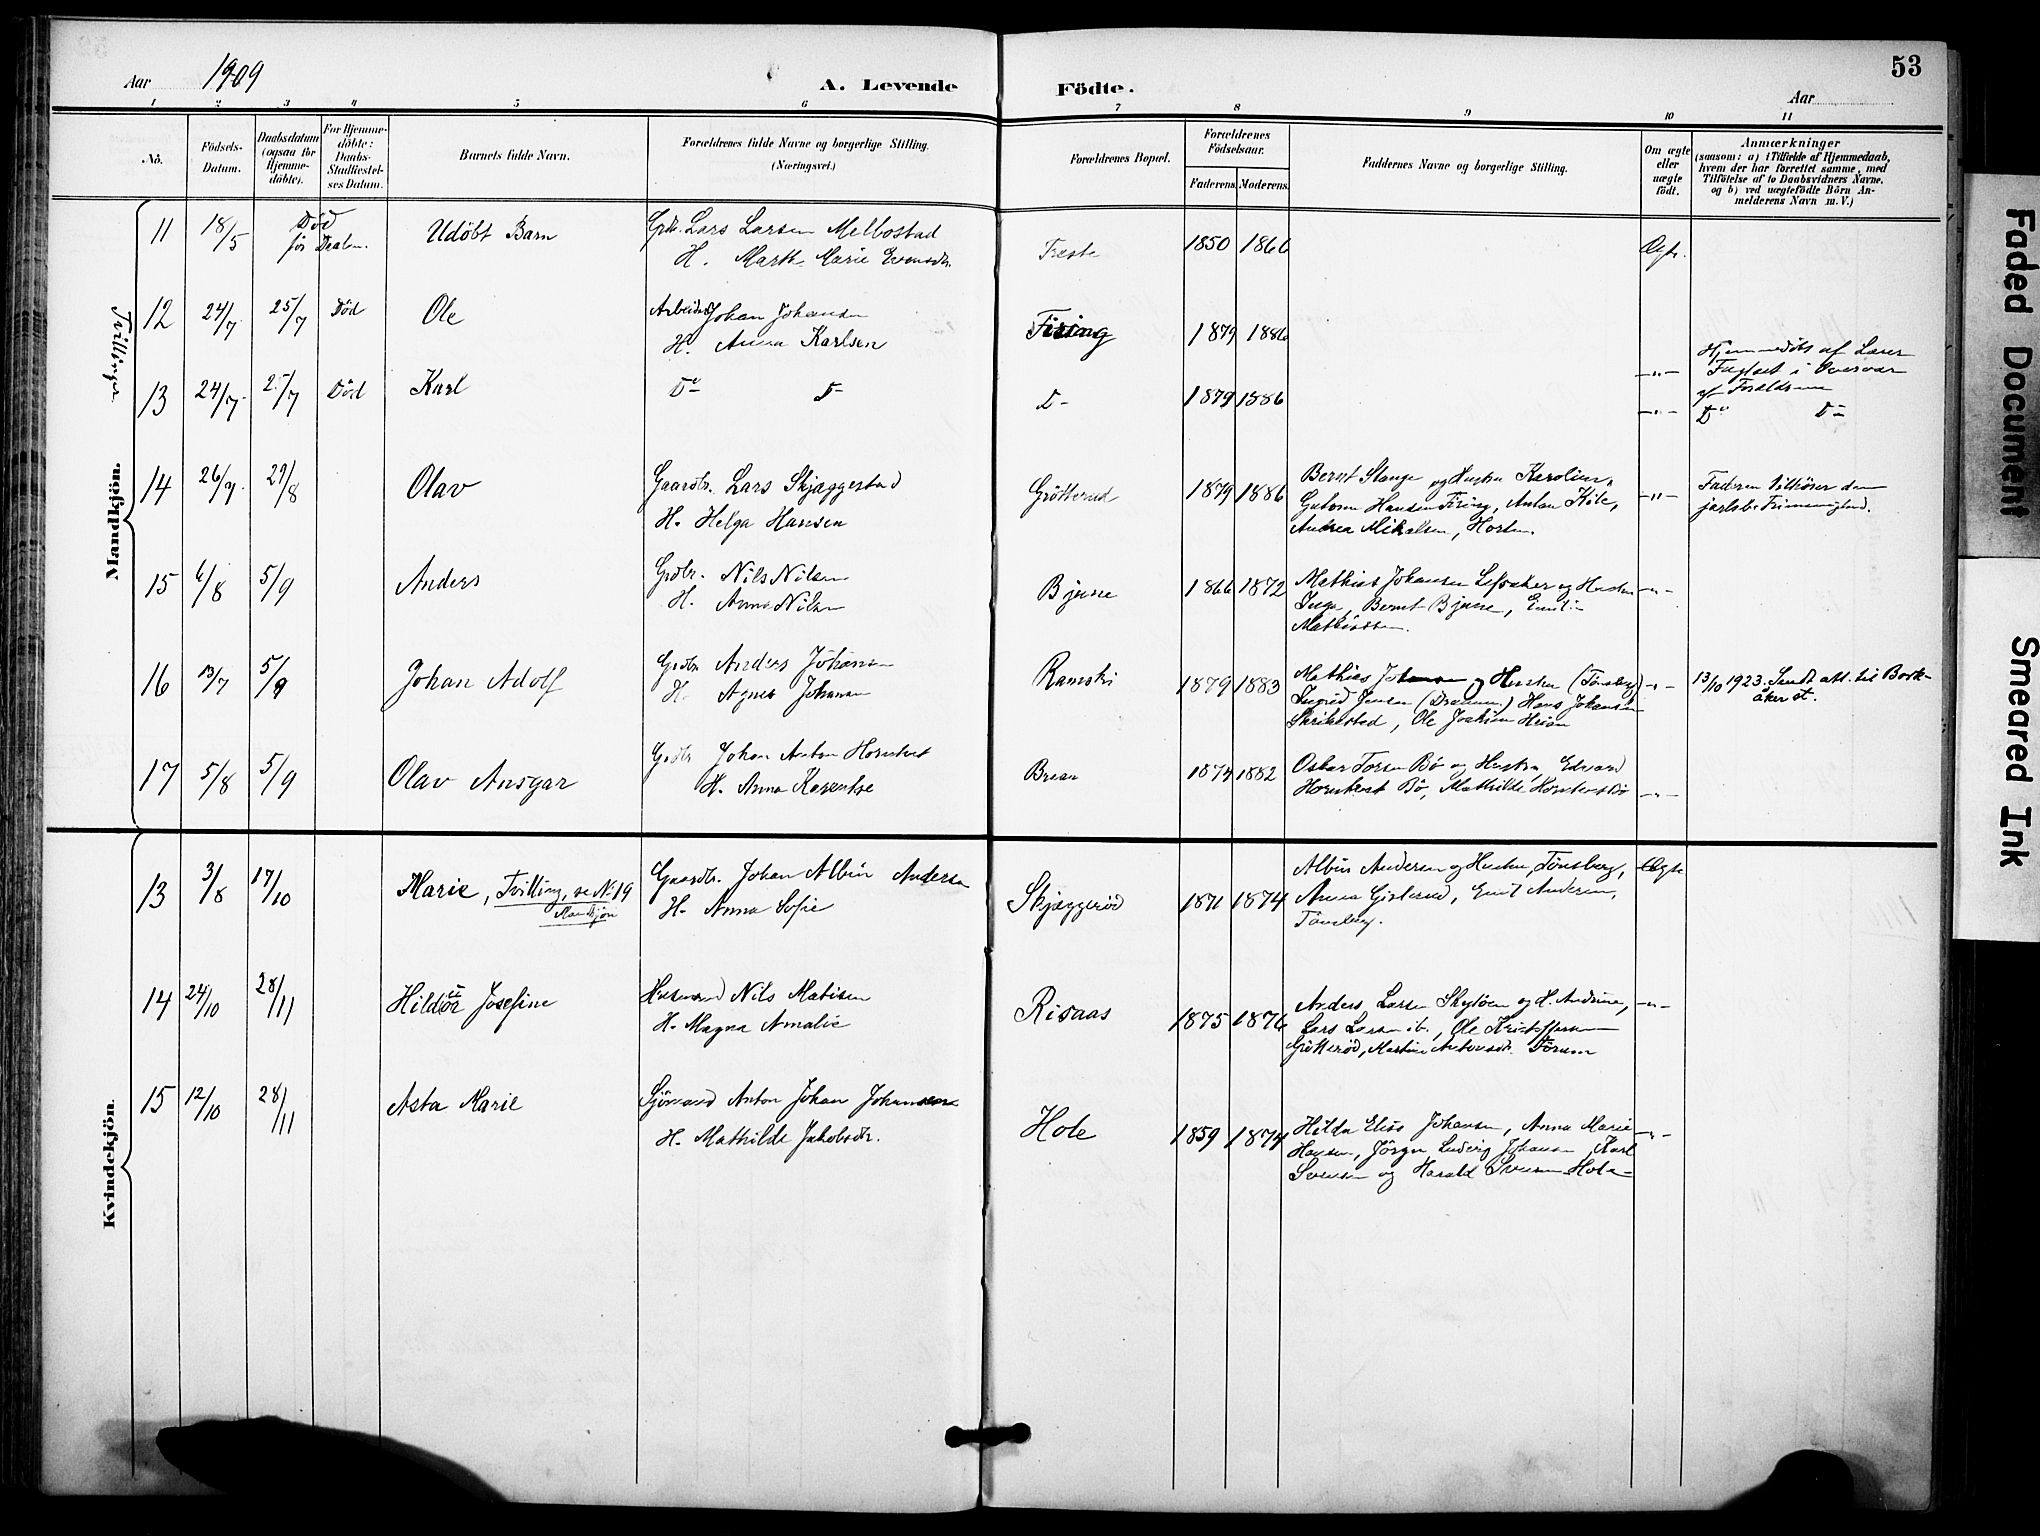 53
Aar 1909
A. Levende Födte.
Aar
1 2 3 4 5 6 7 8 9 10 11
No.
Födsels-
Datum.
Daabsdatum
(ogsaa for
Hjemme-
döbte).
For Hjemme-
döbte:
Daabs-
Stadfæstel-
ses Datum.
Barnets fulde Navn.
Forældrenes fulde Navne og borgerlige Stilling.
(Næringsvei.)
Forældrenes Bopæl.
Forældrenes
Födselsaar.
Faderens. Moderens.
Faddernes Navne og borgerlige Stilling.
Om ægte
eller
uægte
födt.
Anmærkninger
(saasom: a) i Tilfælde af Hjemmedaab,
hvem der har forrettet samme, med
Tilföielse af to Daabsvidners Navne,
og b) ved uægtefödte Börn An-
melderens Navn m. V.)
Mandkjön.
Tvillinger
11 18/5 Död
før Daaben. Udöbt Barn
Lars Larsen Melbostad
H. Marth. Marie Evensdtr.
1850 1866 Ægte.
12 24/7 25/7 Död Ole
Arbeider Johan Johansen
H. Anna Karlsen
Firing 1879 1886 -"-
Hjemmedöbt af Lærer
Fuglset i Overvær
af Forældrene
13 24/7 25/7 Död Karl
Do D-
D- 1879 1886 -"-
Do D-
14 26/7 29/8 Olav
Gaardbr. Lars Skjæggestad
H. Helga Hansen
Grötterud 1879 1886
Bernt Stange og Hustru Karoline,
Hansen Firing, Anton Kile,
Andrea Mikalsen, Horten. -"-
Faderen tilhörer den
jarlsb. Frimenighed.
15 6/8 5/9 Anders
Grdbr. Nils Nilsen
H. Anna Nilsen
Bjerne 1866 1872
Mathias Johansen Lefsaker og Hustru
Inga, Bernt Bjerne, Emilie
Mathisen. -"-
16 13/7 5/9 Johan Adolf
Grdbr. Anders Johansen
H. Agnes Johansen
Ramski 1879 1883
Mathias Johansen og Hustru (Tönsberg)
Ingrid Jensen (Drammen) Hans Johansen
Skrikestad, Ole Joakim Heian -"-
13/10 1923. Sendt att. til Bark-
åker st.
17 5/8 5/9 Olav Ansgar
Grdbr. Johan Anton Horntvet
H. Anna Karentse
Breen 1874 1882
Oskar Torsen Bö og Hustru, Edvard
Horntvet Bö, Mathilde Horntvet Bö -"-
Kvindekjön.
13 3/8 17/10 Marie, Tvilling, se No 19
Mandkjön
Gaardbr. Johan Albin Andersen
H. Anna Sofie
Skjæggeröd 1871 1874
Albin Andersen og Hustru, Tönsberg,
Anna Gislerud, Emil Andersen,
Tönsberg. Ægte
14 24/10 28/11 Hildör Josefine
Husmand Nils Matisen
H. Magna Amalie
Risaas 1875 1876
Anders Larsen Skytöen og H. Andrine,
Lars Larsen ib., Ole Kristoffersen
Gröteröd, Martine Antonsdtr. Förum -"-
15 12/10 28/11 Asta Marie
Sjömand Anton Johan Johansen
H. Mathilde Jakobsdtr.
Hole 1859 1874
Hilda Elise Johansen, Anna Marie
Hansen, Jörgen Ludvig Johansen, Karl
Svensen og Harald Svensen Hole -"-
Faded Document
Smeared Ink